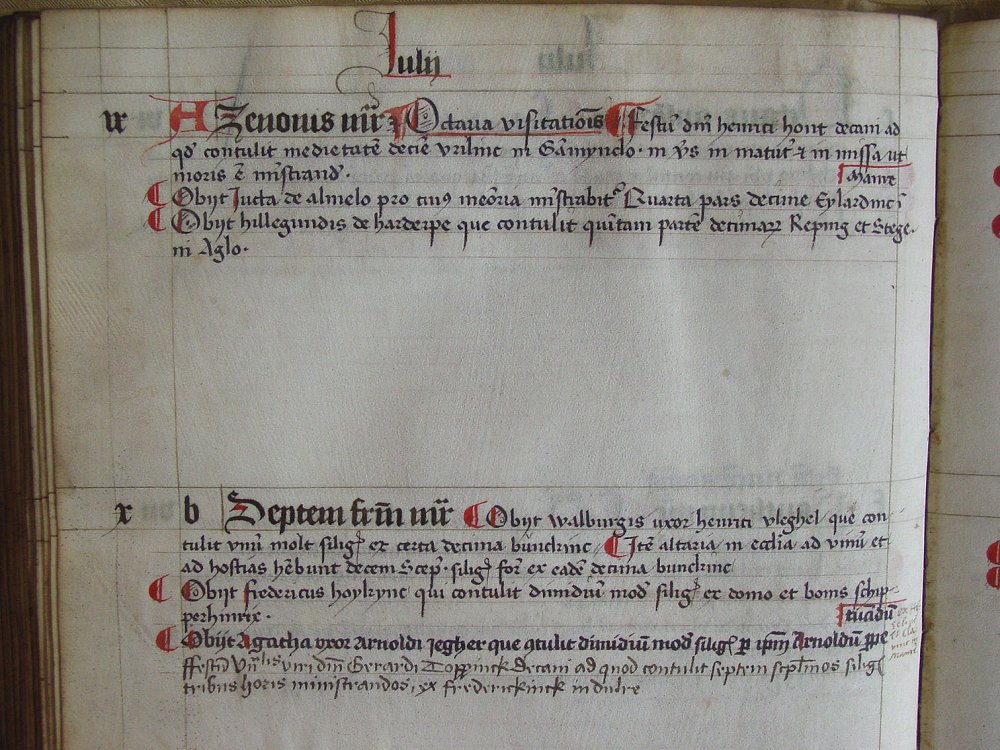 Julij
ix A Zenonis mr̄r Octaua visitatiōis Festū dn̄i henrici hont decani ad
qd̄ contulit medietatē decīe vrilinc in Gām̄ynclo · in v̄s in matut̄ & in missa ut
moris ē mīstrand̄ · manie
Obijt Jutta de almelo pro cuius memōria mīstrabit᷑ Quarta pars decime Eylardinc
Obijt hillegundis de harderpe que contulit quītam partē decimarꝝ Reping et Stege ·
in Aglo ·
x b Septem fr̄m mr̄r Obijt walburgis uxor henrici vleghel que con
tulit vnū molt siliḡ ex certa decima būnckinc Itē altaria in ecclīa ad vinū et
ad hostias hēbunt decem Scep̄ · siliḡ for̄ ex eadē decima bunckinc
Obijt fredericus hoylryng qui contulit dimidiū mod̄ siliḡ ex domo et bonis schip-
perhinrix · 
Obijt Agatha vxor arnoldi Jegher que ꝯtulit dimidiū mod̄ siliḡ p ip̄m Arnoldū ppe
ffestū dn̄i Gerardi Toppinck decani ad quod contulit septem siliḡ
tribus horis ministrandos, ex frederickinck in dulre